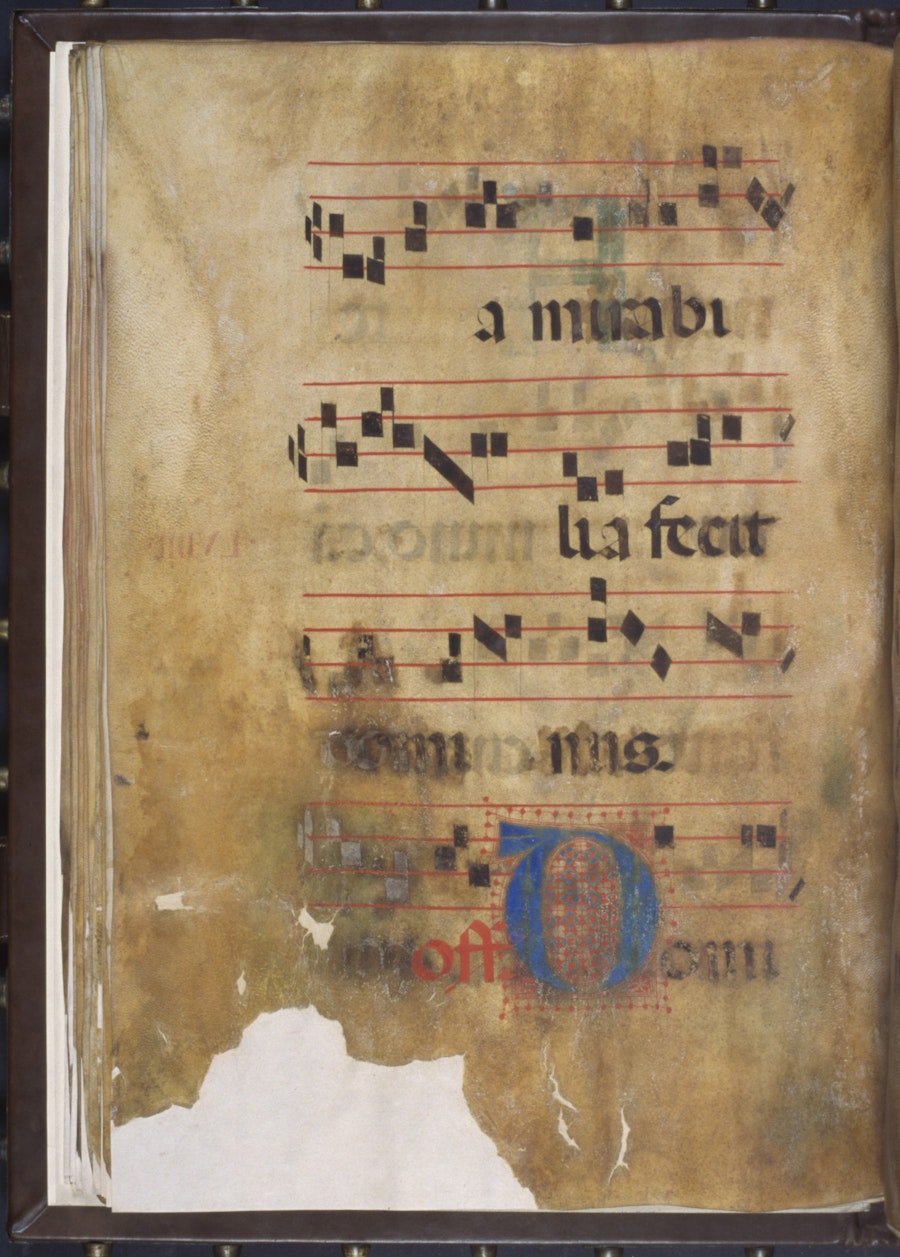 a mirabi
lia fecit
domi nus.
off Domi